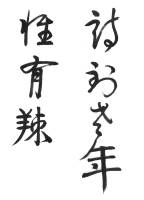 詩到老年
惟有辣